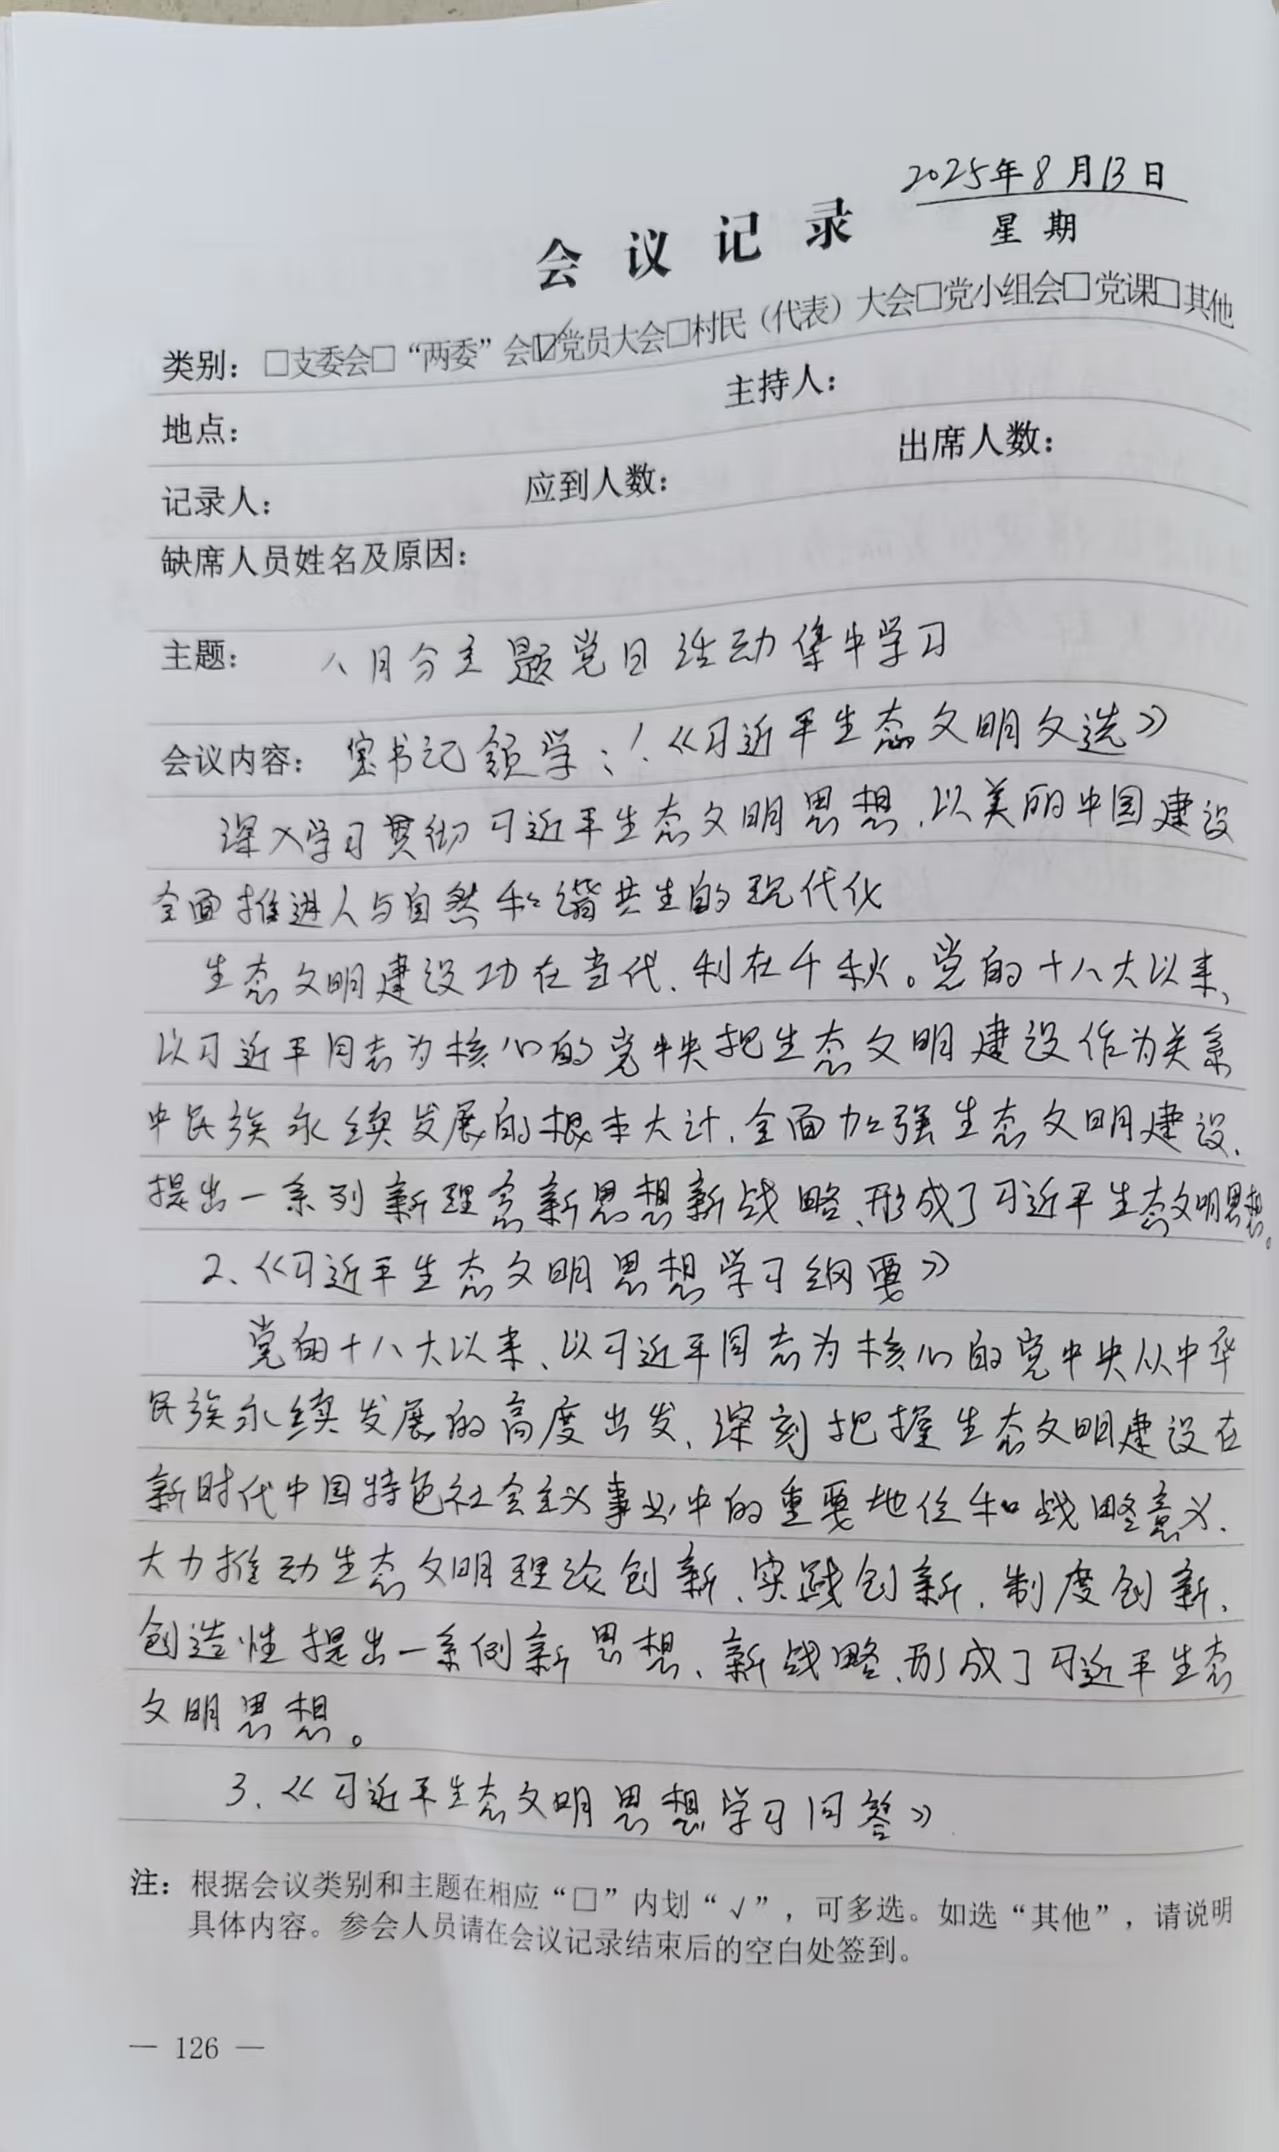 2025年8月13日
会议记录
星期
类别：□支委会□“两委”会☑党员大会□村民（代表）大会□党小组会□党课□其他
地点： 主持人：
记录人： 应到人数： 出席人数：
缺席人员姓名及原因：
主题： 八月分主题党日活动集中学习
会议内容： 书记领学：1.《习近平生态文明文选》
深入学习贯彻习近平生态文明思想、以美丽中国建设
全面推进人与自然和谐共生的现代化
生态文明建设功在当代、利在千秋。党的十八大以来、
以习近平同志为核心的党中央把生态文明建设作为关系
中民族永续发展的根本大计、全面加强生态文明建设、
提出一系列新理念新思想新战略、形成了习近平生态文明思想。
2、《习近平生态文明思想学习纲要》
党的十八大以来、以习近平同志为核心的党中央从中华
民族永续发展的高度出发、深刻把握生态文明建设在
新时代中国特色社会主义事业中的重要地位和战略意义、
大力推动生态文明理论创新、实践创新、制度创新、
创造性提出一系例新思想、新战略、形成了习近平生态
文明思想。
3、《习近平生态文明思想学习问答》
注：根据会议类别和主题在相应“□”内划“√”，可多选。如选“其他”，请说明
具体内容。参会人员请在会议记录结束后的空白处签到。
— 126 —